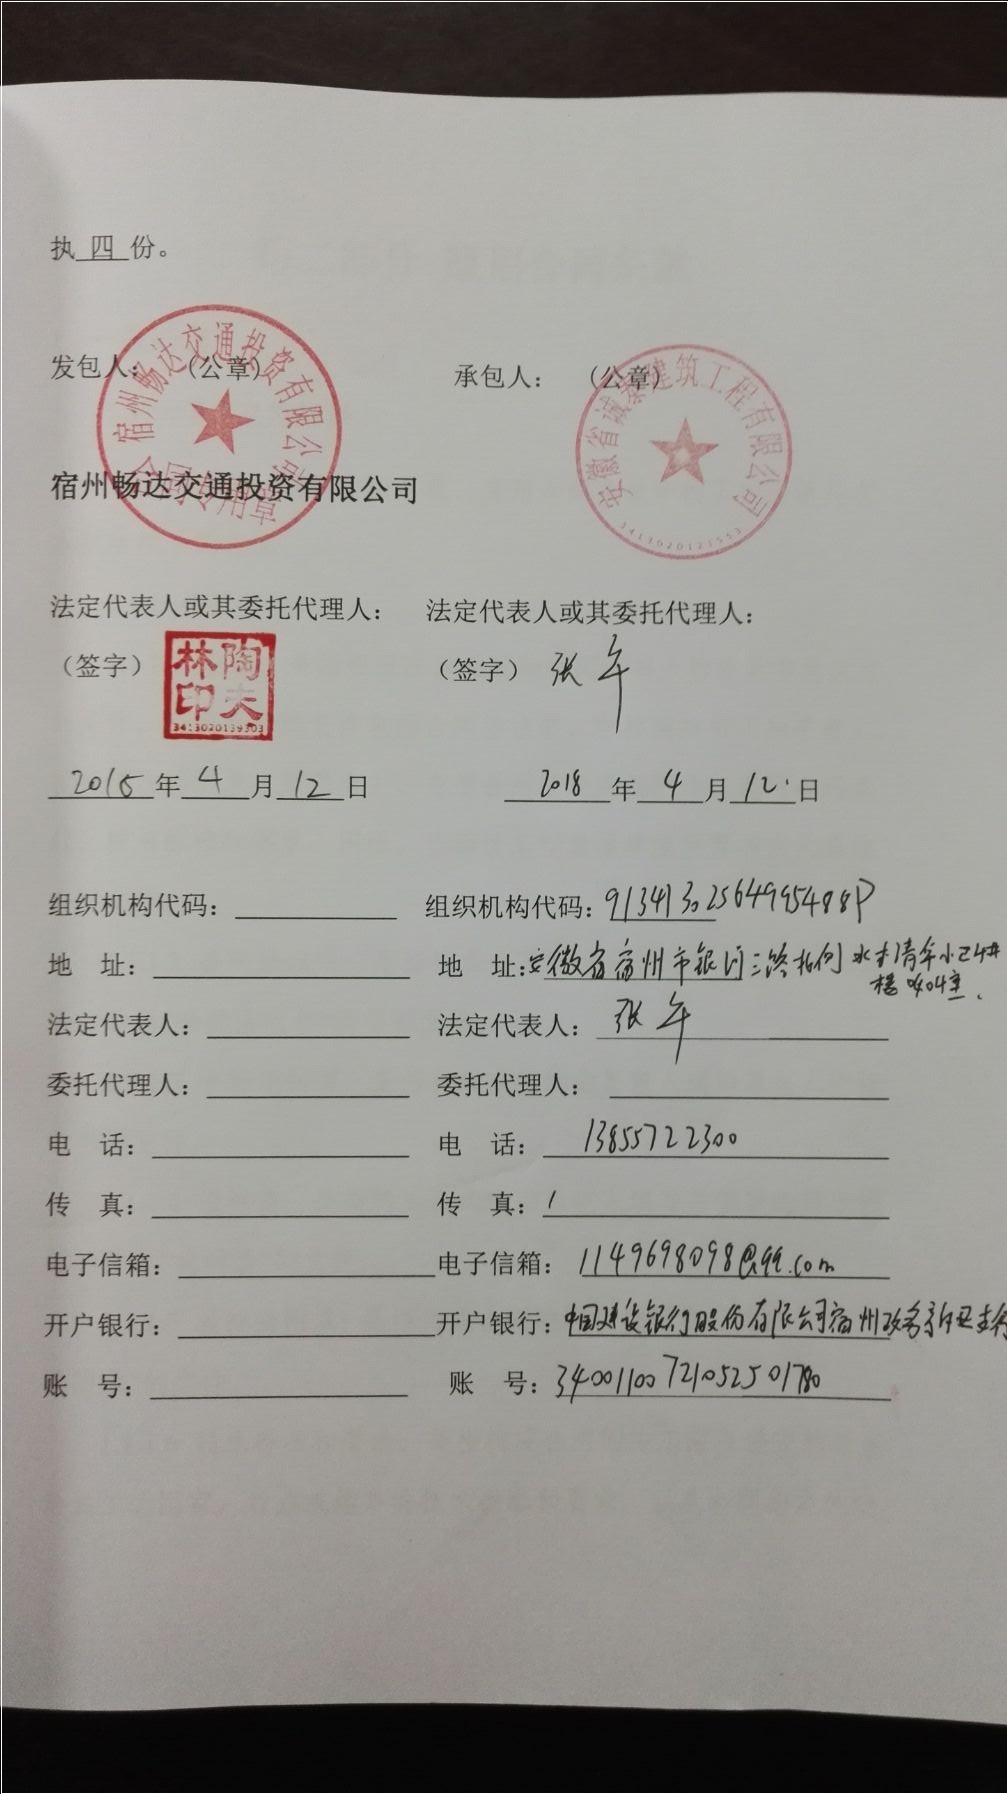 执四份。
发包人：（公章）
承包人：（公章）
宿州畅达交通投资有限公司
合同专用章
安徽省诚泰建筑工程有限公司
3413020121553
宿州畅达交通投资有限公司
法定代表人或其委托代理人：
法定代表人或其委托代理人：
（签字）
陶夫林印
3413020139303
（签字）张午
2018年4月12日
2018年4月12日
组织机构代码：
组织机构代码：91341302564995488P
地 址：
地 址：安徽省宿州市银河三路北侧水木清华小区4#
楼0404室
法定代表人：
法定代表人：张午
委托代理人：
委托代理人：
电 话：
电 话：13855722300
传 真：
传 真：/
电子信箱：
电子信箱：1149698098@qq.com
开户银行：
开户银行：中国建设银行股份有限公司宿州政务新区支行
账 号：
账 号：34001100721052501780